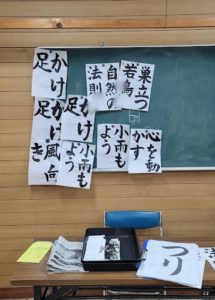 巣立つ
若鳥
自然の
法則
かけ
足
心を動
かす
小雨も
よう
かけ
足
小雨も
よう
かけ
足
風向
き
つり